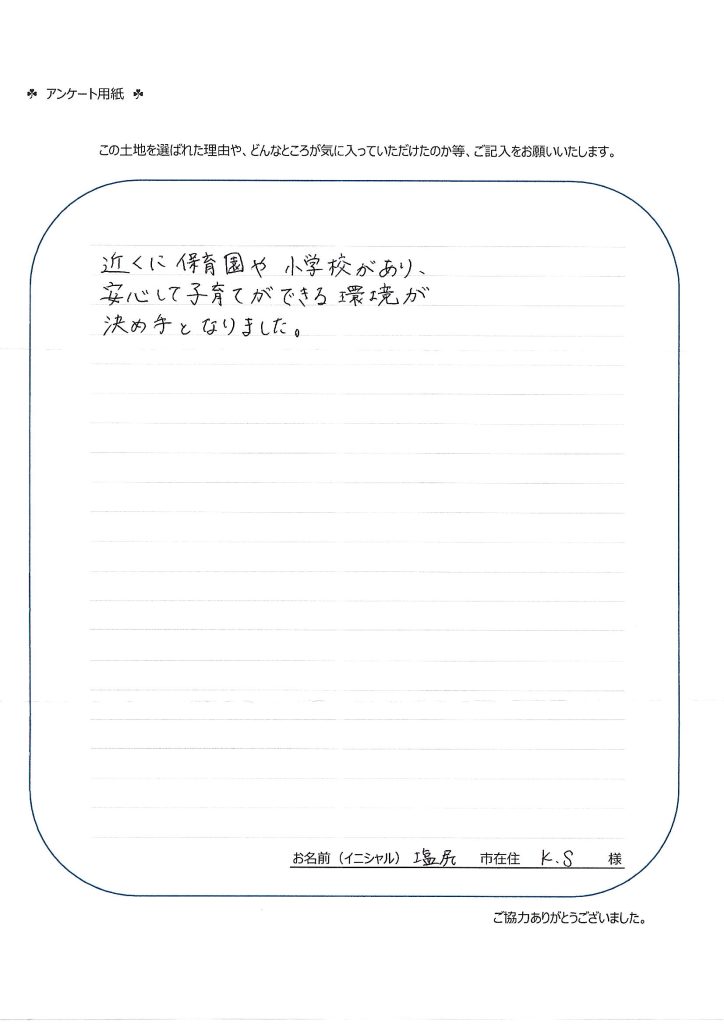 ☘ アンケート用紙 ☘
この土地を選ばれた理由や、どんなところが気に入っていただけたのか等、ご記入をお願いいたします。
近くに保育園や小学校があり、
安心して子育てができる環境が
決め手となりました。
お名前（イニシャル） 塩尻 市在住 K.S 様
ご協力ありがとうございました。